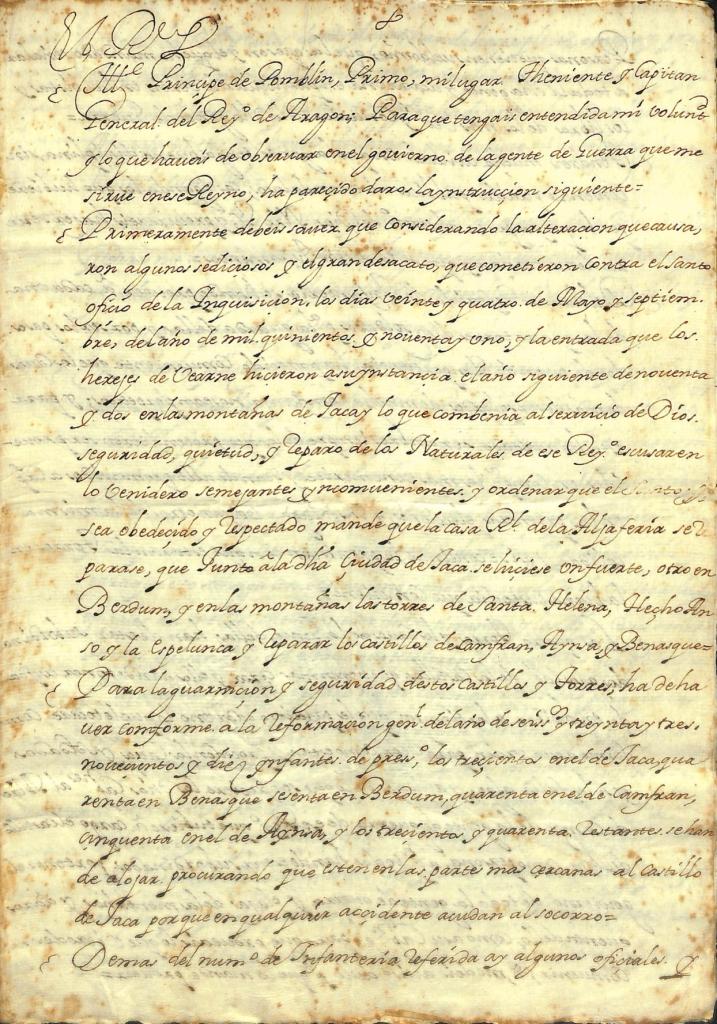 El Rey
Ille Principe de Pomblin, Primo, mi lugar Theniente y Capitan
General del Reyº de Aragon; Para que tengais entendida mi volunt.d
y lo que haveis de observar en el govierno de la gente de Guerra que me
sirve en ese Reyno, ha pareçido daros la ynstruccion siguiente=
Primeramente debeis saver que considerando la alteracion que causa,
ron algunos sediciosos y el gran desacato, que cometieron contra el santo
oficio de la Inquisicion, los dias veinte y quatro de Mayo y septiem
bre, del año de mil quinientos y noventa y uno, y la entrada que los
herejes de Vearne hicieron a su ynstançia el año siguiente de noventa
y dos en las montañas de Jaca y lo que combenia al servicio de Dios
seguridad, quietud, y reparo de los Naturales de ese Reyº escusar en
lo venidero semejantes yncomvenientes y ordenar que el Santo
sea obedeçido y respectado mande que la casa Rl de la Aljaferia se re
parase, que Junto â la dha Çiudad de Jaca se hiçiese un fuerte, otro en
Berdum, y en las montañas las torres de Santa Helena, Hecho An
so y la Espelunca y reparar los castillos de Camfran, Aynsa, y Benasque=
Para la guarniçion y seguridad destos Castillos y Torres, ha de ha
ver comforme a la reformacion genl del año de seisos y treynta y tres,
noveçientos y diez ynfantes de pressº, los treçientos en el de Jaca, qua
renta en Benasque sesenta en Berdum, quarenta en el de Camfran,
cinquenta en el de Aynsa, y los treçientos y quarenta restantes se han
de alojar procurando que esten en las parte mas cercanas al Castillo
de Jaca porque en qualquier acçidente acudan al socorro=
Demas del numº de Infanteria referida ay algunos ofiçiales y